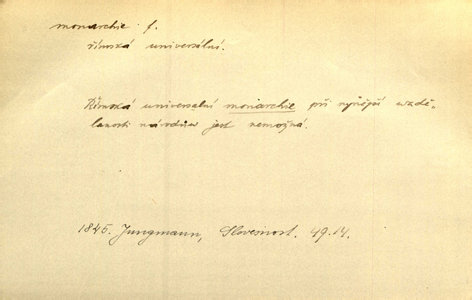 monarchie f.
římská universální.
Římská universalní monarchie při nynější wzdě-
lanosti národůw jest nemožná.
1845. Jungmann, Slovesnost. 49.14.